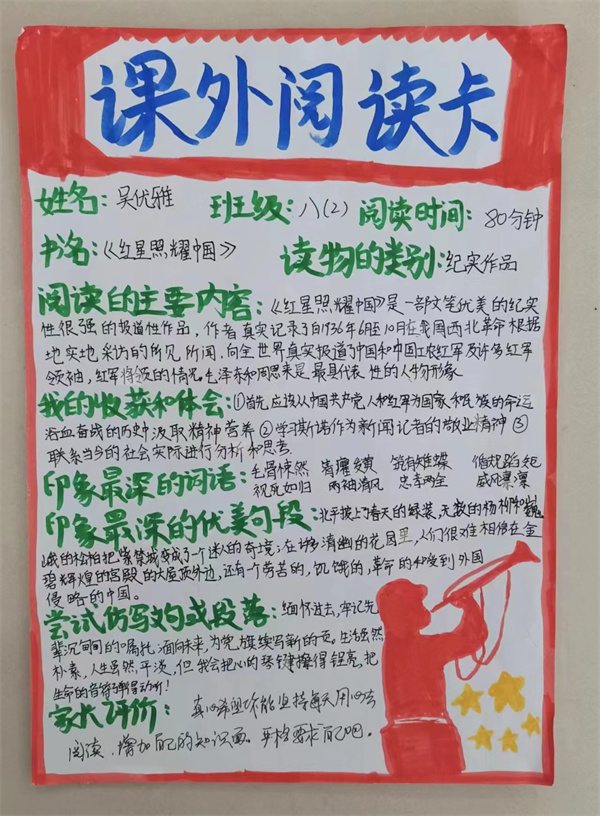 课外阅读卡
姓名：吴优雅 班级：八(2) 阅读时间：80分钟
书名：《红星照耀中国》 读物的类别：纪实作品
阅读的主要内容：《红星照耀中国》是一部文笔优美的纪实
性很强的报道性作品，作者真实记录了自1936年6月至10月在我国西北革命根据
地实地采访的所见所闻，向全世界真实报道了中国和中国工农红军及许多红军
领袖，红军将领的情况。毛泽东和周恩来是最具代表性的人物形象
我的收获和体会：①首先，应该从中国共产党人和红军为国家和民族的命运
浴血奋战的历史汲取精神营养②学习斯诺作为新闻记者的敬业精神③
联系当今的社会实际进行分析和思考
印象最深的词语：毛骨悚然 循规蹈矩
视死如归 两袖清风 忠孝两全 威风凛凛
印象最深的优美句段：北平披上了春天的绿装，无数的杨柳和巍
峨的松柏把紫禁城变成了一个迷人的奇境；在许多清幽的花园里，人们很难相信在金
碧辉煌的宫殿的大屋顶外边，还有一个劳苦的，饥饿的，革命的和受到外国
侵略的中国。
尝试仿写文句或段落：缅怀过去，牢记先
辈沉甸甸的嘱托；面向未来，为党旗续写新的页。生活虽然
朴素，人生虽然平淡，但我会把心的琴键擦得锃亮，把
生命的音符弹得动听！
家长评价：真心希望你能坚持每天用心去
阅读，增加自己的知识面。严格要求自己吧。